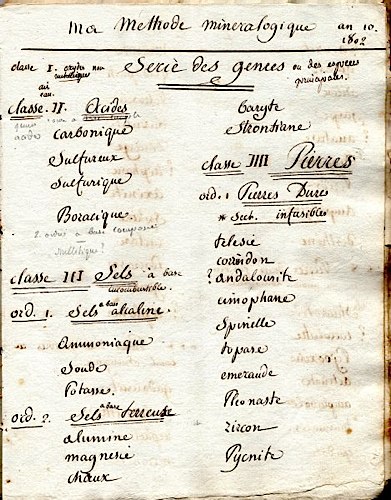 Ma Methode mineralogique an 10.
1802
classe I. oxydes non
metalliques
Serie des genres ou des especes
principales.
air
eau.
Classe II Acides
carbonique
Sulfureux
Sulfurique
Boracique
2 ordre à base
metallique?
classe III Sels à base
incombustible.
ord. 1. Sels à base alkaline.
Ammoniaque
Soude
Potasse.
ord. 2. Sels à base terreuse
alumine
magnesie
chaux
baryte
Strontiane
classe IIII Pierres
ord. 1 Pierres Dures
* Sub. infusibles
telesie
corindon
? andalousite
cimophane
Spinelle
topase
emeraude
Pleonaste
zircon
Pycnite